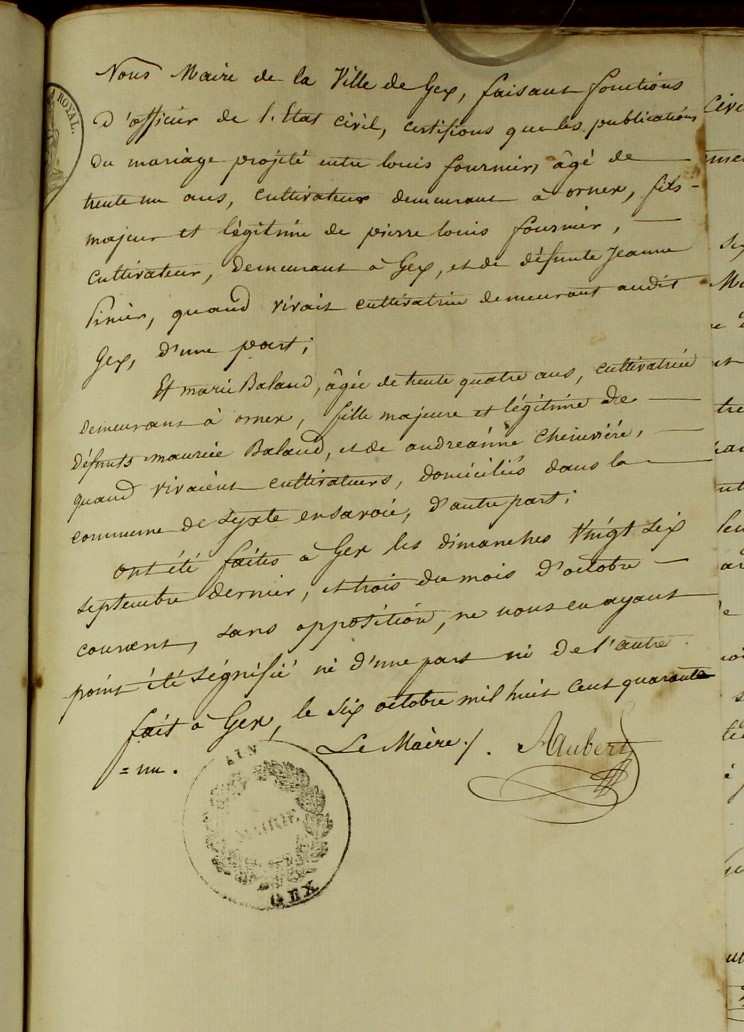 Nous Maire de la Ville de Gex, faisant fonctions
D'officier de l'Etat civil, certifions que les publications
du mariage projeté entre louis fournier, âgé de
trente un ans, cultivateur demeurant à ornex, fils
majeur et légitime de pierre louis fournier,
cultivateur, demeurant à Gex, et de défunte Jeanne
quand vivait cultivatrice demeurant audit
Gex, d'une part;
Et marie Baland, âgée de trente quatre ans, cultivatrice
demeurant à ornex, fille majeure et légitime de
défunts maurice Baland, et de andréanne
quand vivaient cultivateurs, domiciliés dans la
commune de Syxte en savoie, d'autre part;
ont été faites à Gex les dimanches vingt six
septembre dernier, et trois du mois d'octobre
courant, sans opposition, ne nous en ayant
point été signifié ni d'une part ni de l'autre.
fait à Gex, le six octobre mil huit cent quarante
=un. Le Maire /. Aubert
ROYAL.
AIN
MAIRIE
GEX